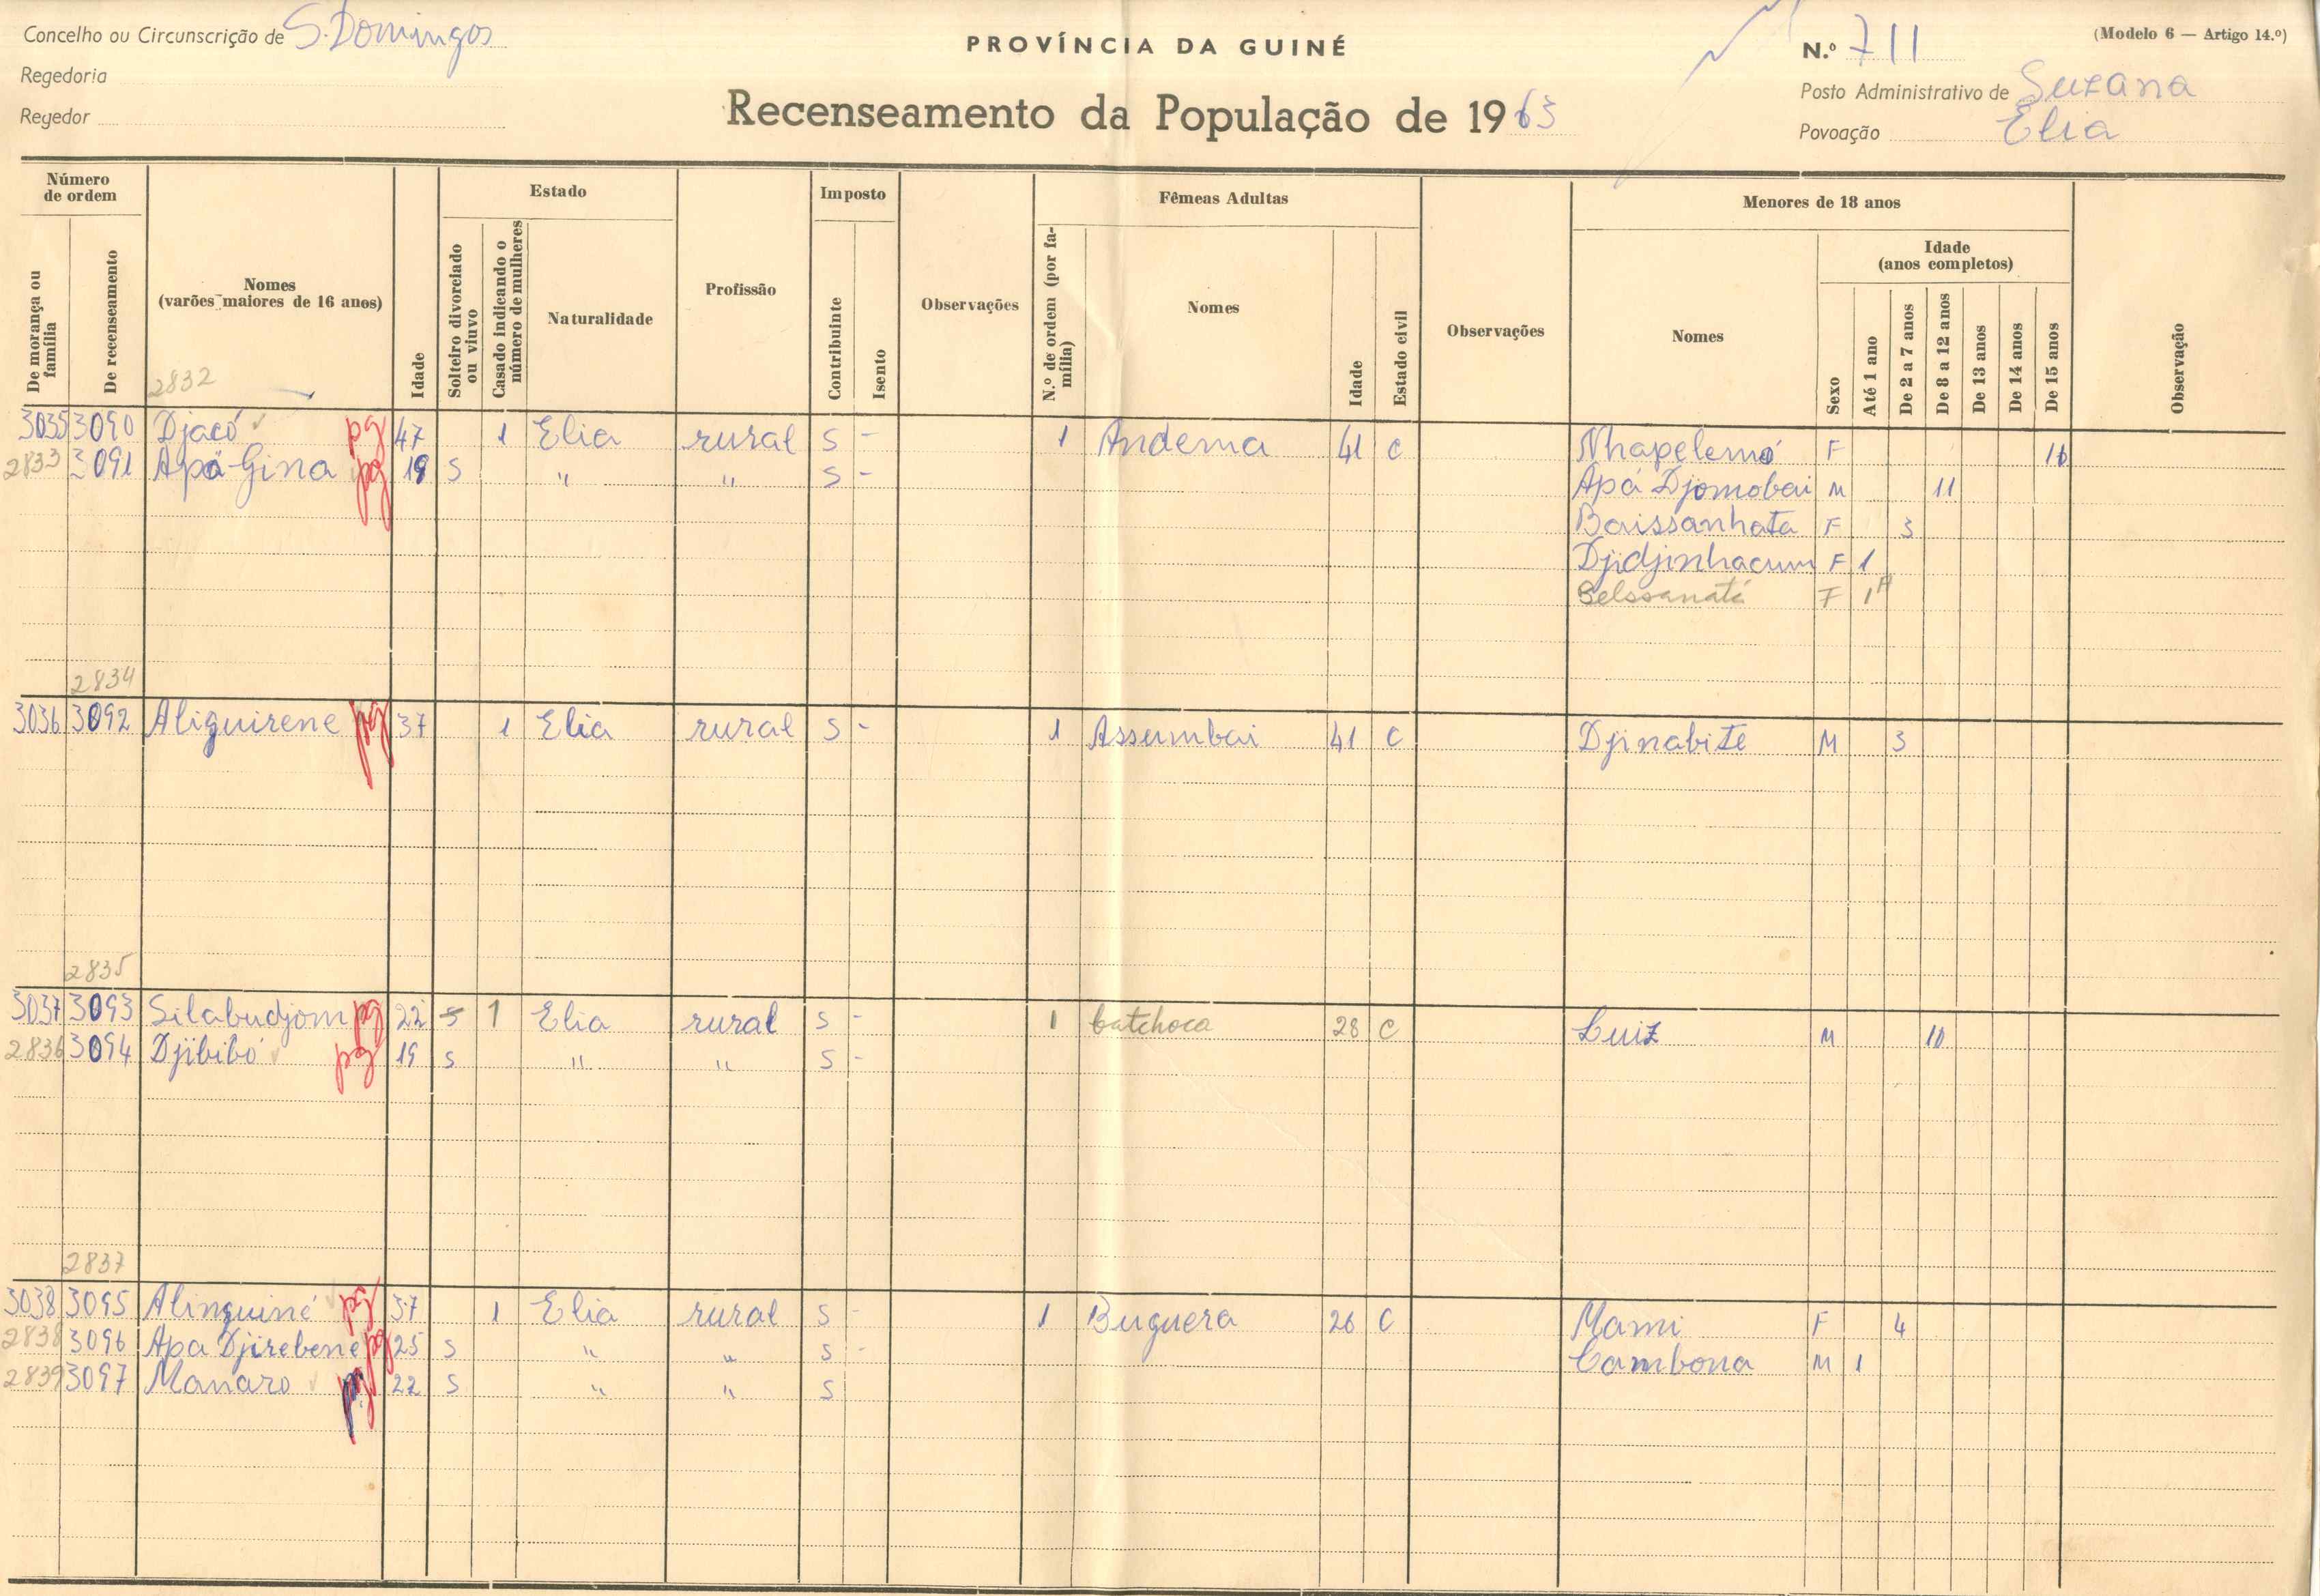 Concelho ou Circunscrição de S. Domingos
PROVÍNCIA DA GUINÉ
N.º 711
(Modelo 6 — Artigo 14.º)
Regedoria
Posto Administrativo de Suzana
Regedor
Recenseamento da População de 1963
Povoação Elia
Número de ordem
De morança ou família
De recenseamento
Nomes (varões maiores de 16 anos)
Idade
Estado
Solteiro divorciado ou viuvo
Casado indicando o número de mulheres
Naturalidade
Profissão
Imposto
Contribuinte
Isento
Observações
Fêmeas Adultas
N.º de ordem (por família)
Nomes
Idade
Estado civil
Observações
Menores de 18 anos
Nomes
Sexo
Idade (anos completos)
Até 1 ano
De 2 a 7 anos
De 8 a 12 anos
De 13 anos
De 14 anos
De 15 anos
Observação
2832
3035 3090 Djacó pg 47 1 Elia rural S - 1 Andema 41 C Nhapelemó F 16
2833 3091 Apá-Gina pg 19 S " " S - Apá Djomobai M 11
Baissanhata F 3
Djidjinhacum F 1
Belssanatá F 1A
2834
3036 3092 Aliguirene pg 37 1 Elia rural S - 1 Assumbai 41 C Djinabite M 3
2835
3037 3093 Silabudjom pg 22 S 1 Elia rural S - 1 batchoca 28 C Luiz M 10
2836 3094 Djibibó pg 19 S " " S -
2837
3038 3095 Alinguiné pg 37 1 Elia rural S - 1 Buguera 26 C Mami F 4
2838 3096 Apa Djirebene pg 25 S " " S - Cambona M 1
2839 3097 Manaro pg 22 S " " S